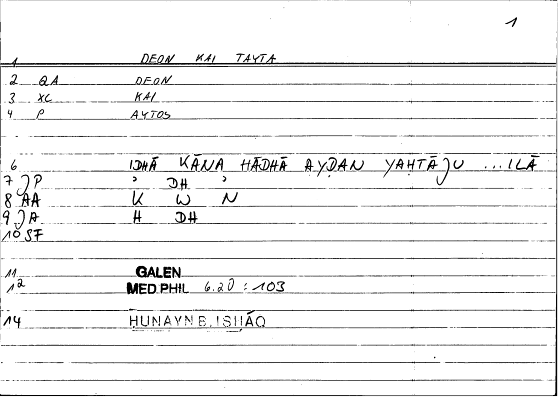 1
1 DEON KAI TAYTA
2 QA DEON
3 XC KAI
4 P AYTOS
6 IDHĀ KĀNA HĀDHĀ AYḌAN YAḤTĀJU ... ILĀ
7 JP ' DH '
8 AA K W N
9 JA H DH
10 SF
11 GALEN
12 MED.PHIL 6.20 : 103
14 HUNAYN B. ISḤĀQ